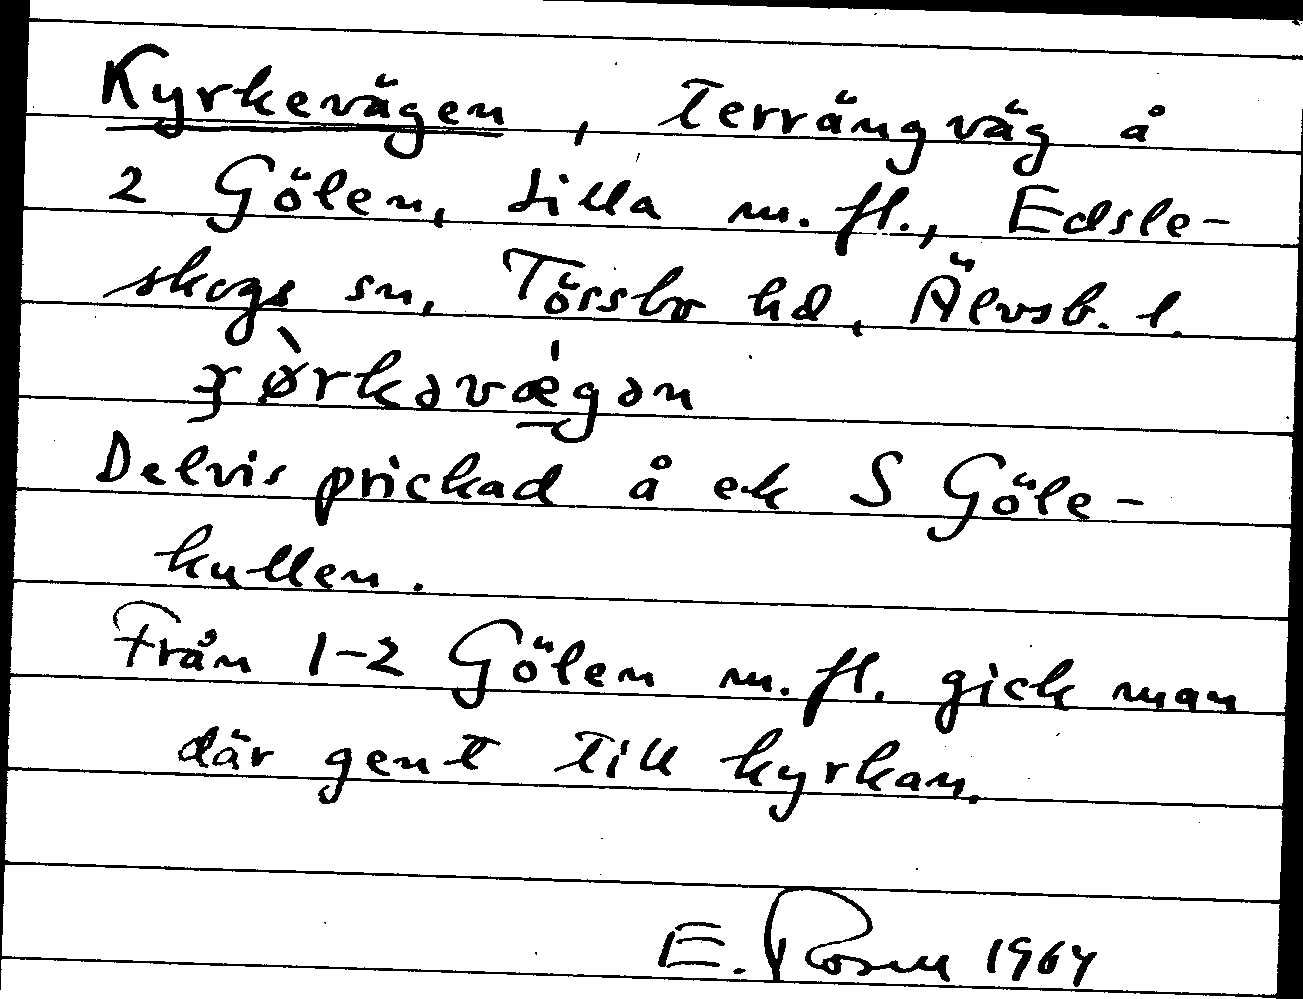 Kyrkevägen, terrängväg å
2 Gölen, Lilla m. fl., Edsle-
skogs sn, Tössbo hd, Älvsb. l.
ʒø̀rkəvǽ̲gən
Delvis prickad å ek S Göle-
kullen.
Från 1-2 Gölen m. fl. gick man
där gent till kyrkan.
E. Rosell 1964